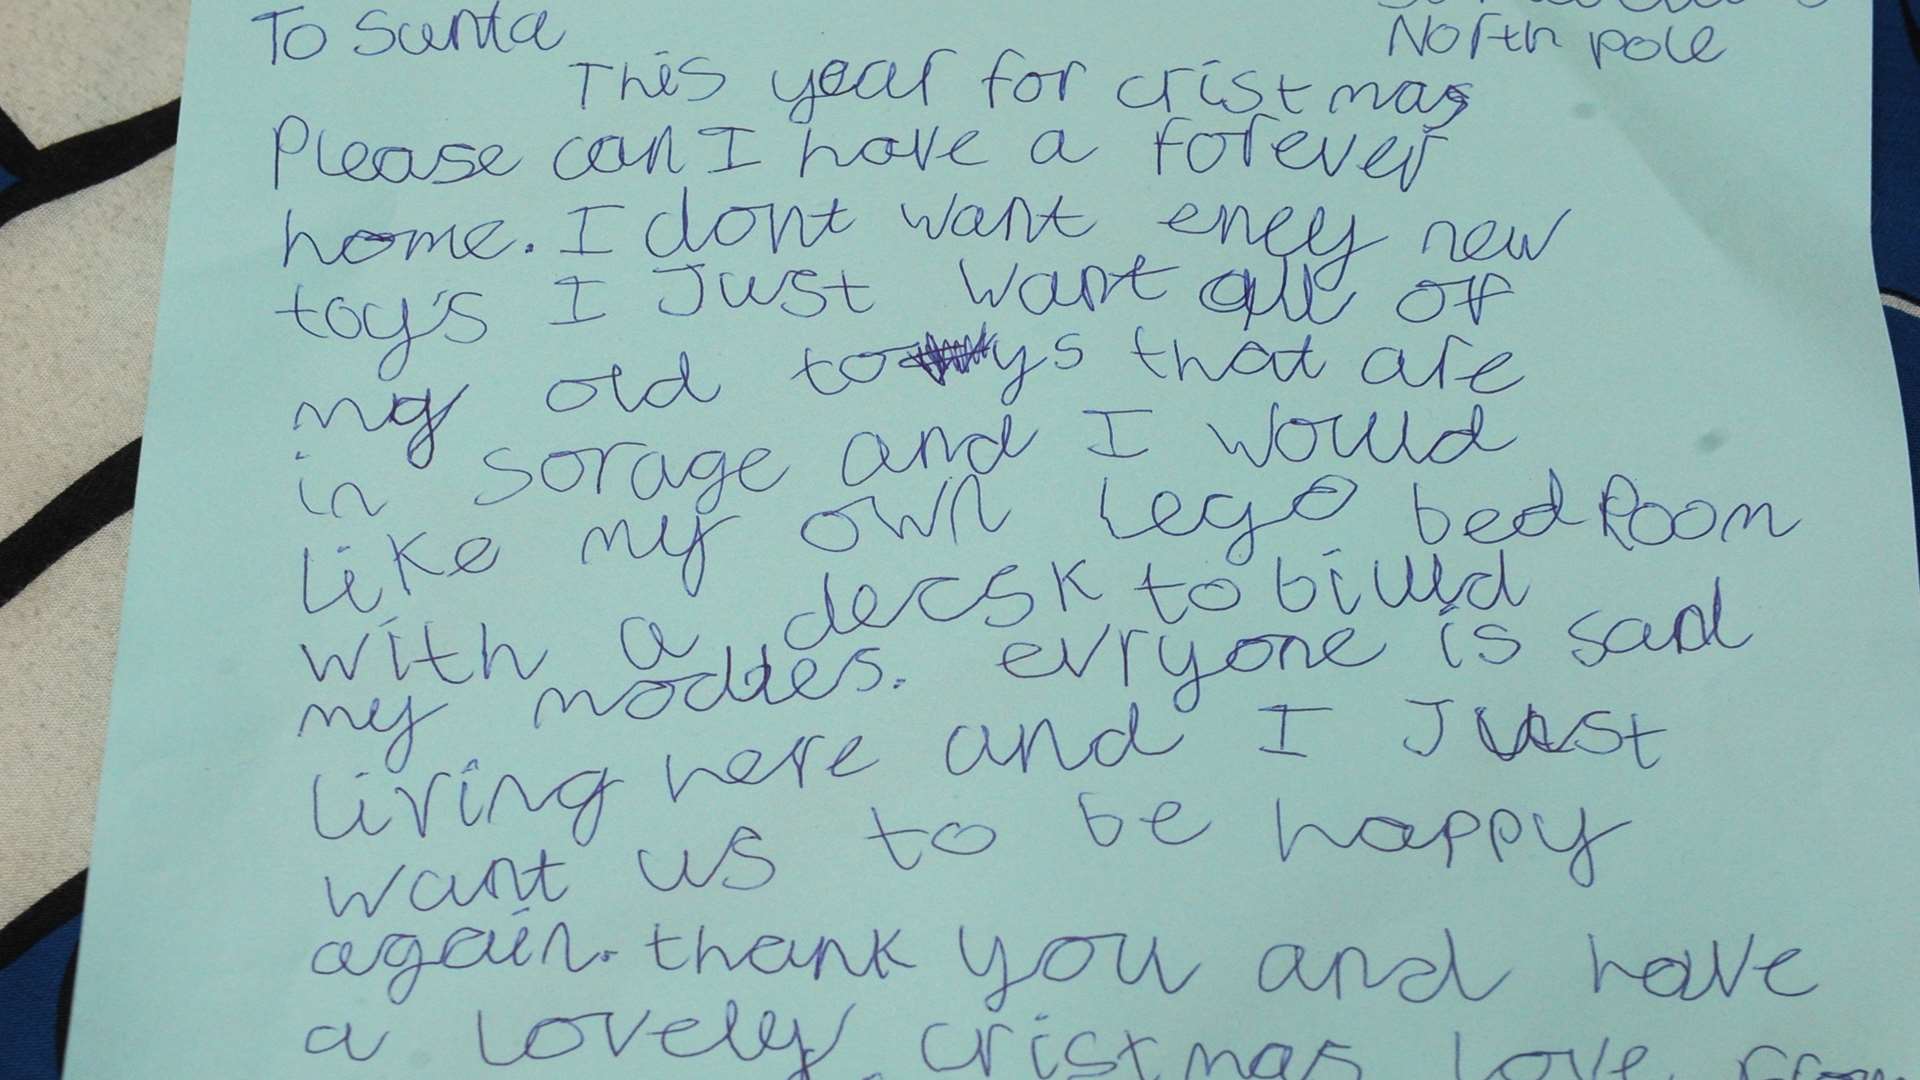 To Santa
North pole
This year for cristmas
Please can I have a forever
home. I dont want eney new
toy's I Just want all of
my old toys that are
in sorage and I would
like my own lego bedRoom
with a decsk to biuld
my moddes. evryone is sad
living here and I Just
want us to be happy
again. thank you and have
a lovely cristmas love from